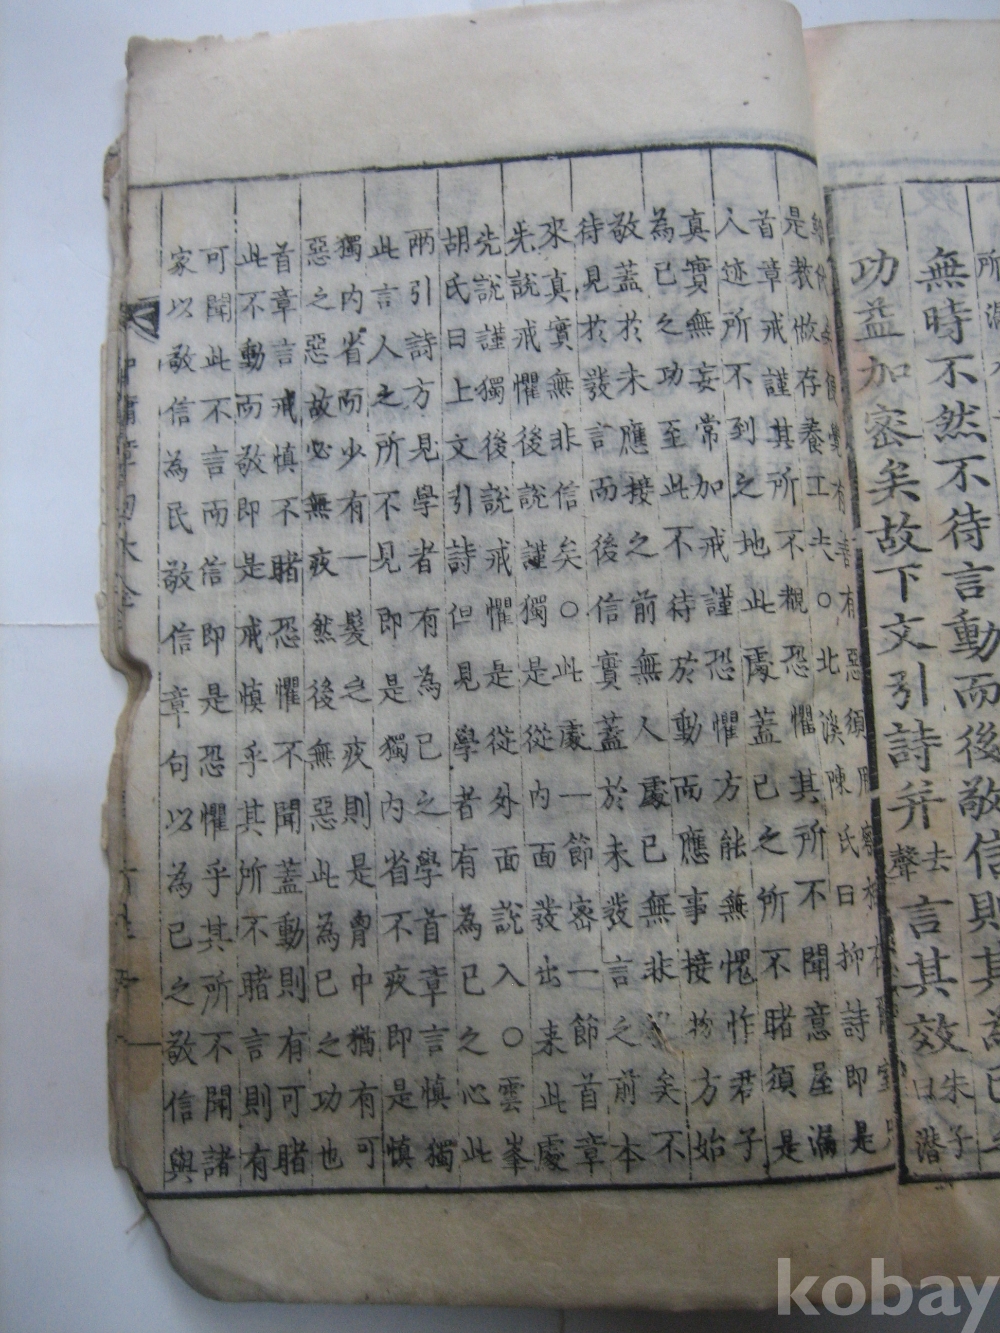 無時不然不待言動而後敬信則其為己
功益加密矣故下文引詩幷去聲言其效朱子曰潛
有善有惡須用
是教做存養工夫○北溪陳氏曰抑詩即是
首章戒謹其所不覩恐懼其所不聞意屋漏
人迹所不到之地此處蓋已之所不睹須是
真實無妄常加戒謹恐懼方能無愧怍君子
為已之功至此不待於動而應事接物方始
敬蓋於未應接之前無人處已無非敬矣不
待見於發言而後信實蓋於未發言之前本
來真實無非信矣○此處一節密一節首章
先說戒懼後說謹獨是從內面發出來此處
先說謹獨後說戒懼是從外面說入○雲峯
胡氏曰上文引詩但見學者有為已之心此
兩引詩方見學者有為已之學首章言慎獨
此言人之所不見即是獨內省不疚即是慎
獨內省而少有一髮之疚則是胷中猶有可
惡之惡故必無疚然後無惡此為已之功也
首章言戒慎不睹恐懼不聞蓋動則有可睹
此不動而敬即是戒慎乎其所不睹言則有
可聞此不言而信即是恐懼乎其所不聞諸
家以敬信為民敬信章句以為已之敬信與
中庸章句大全
kobay